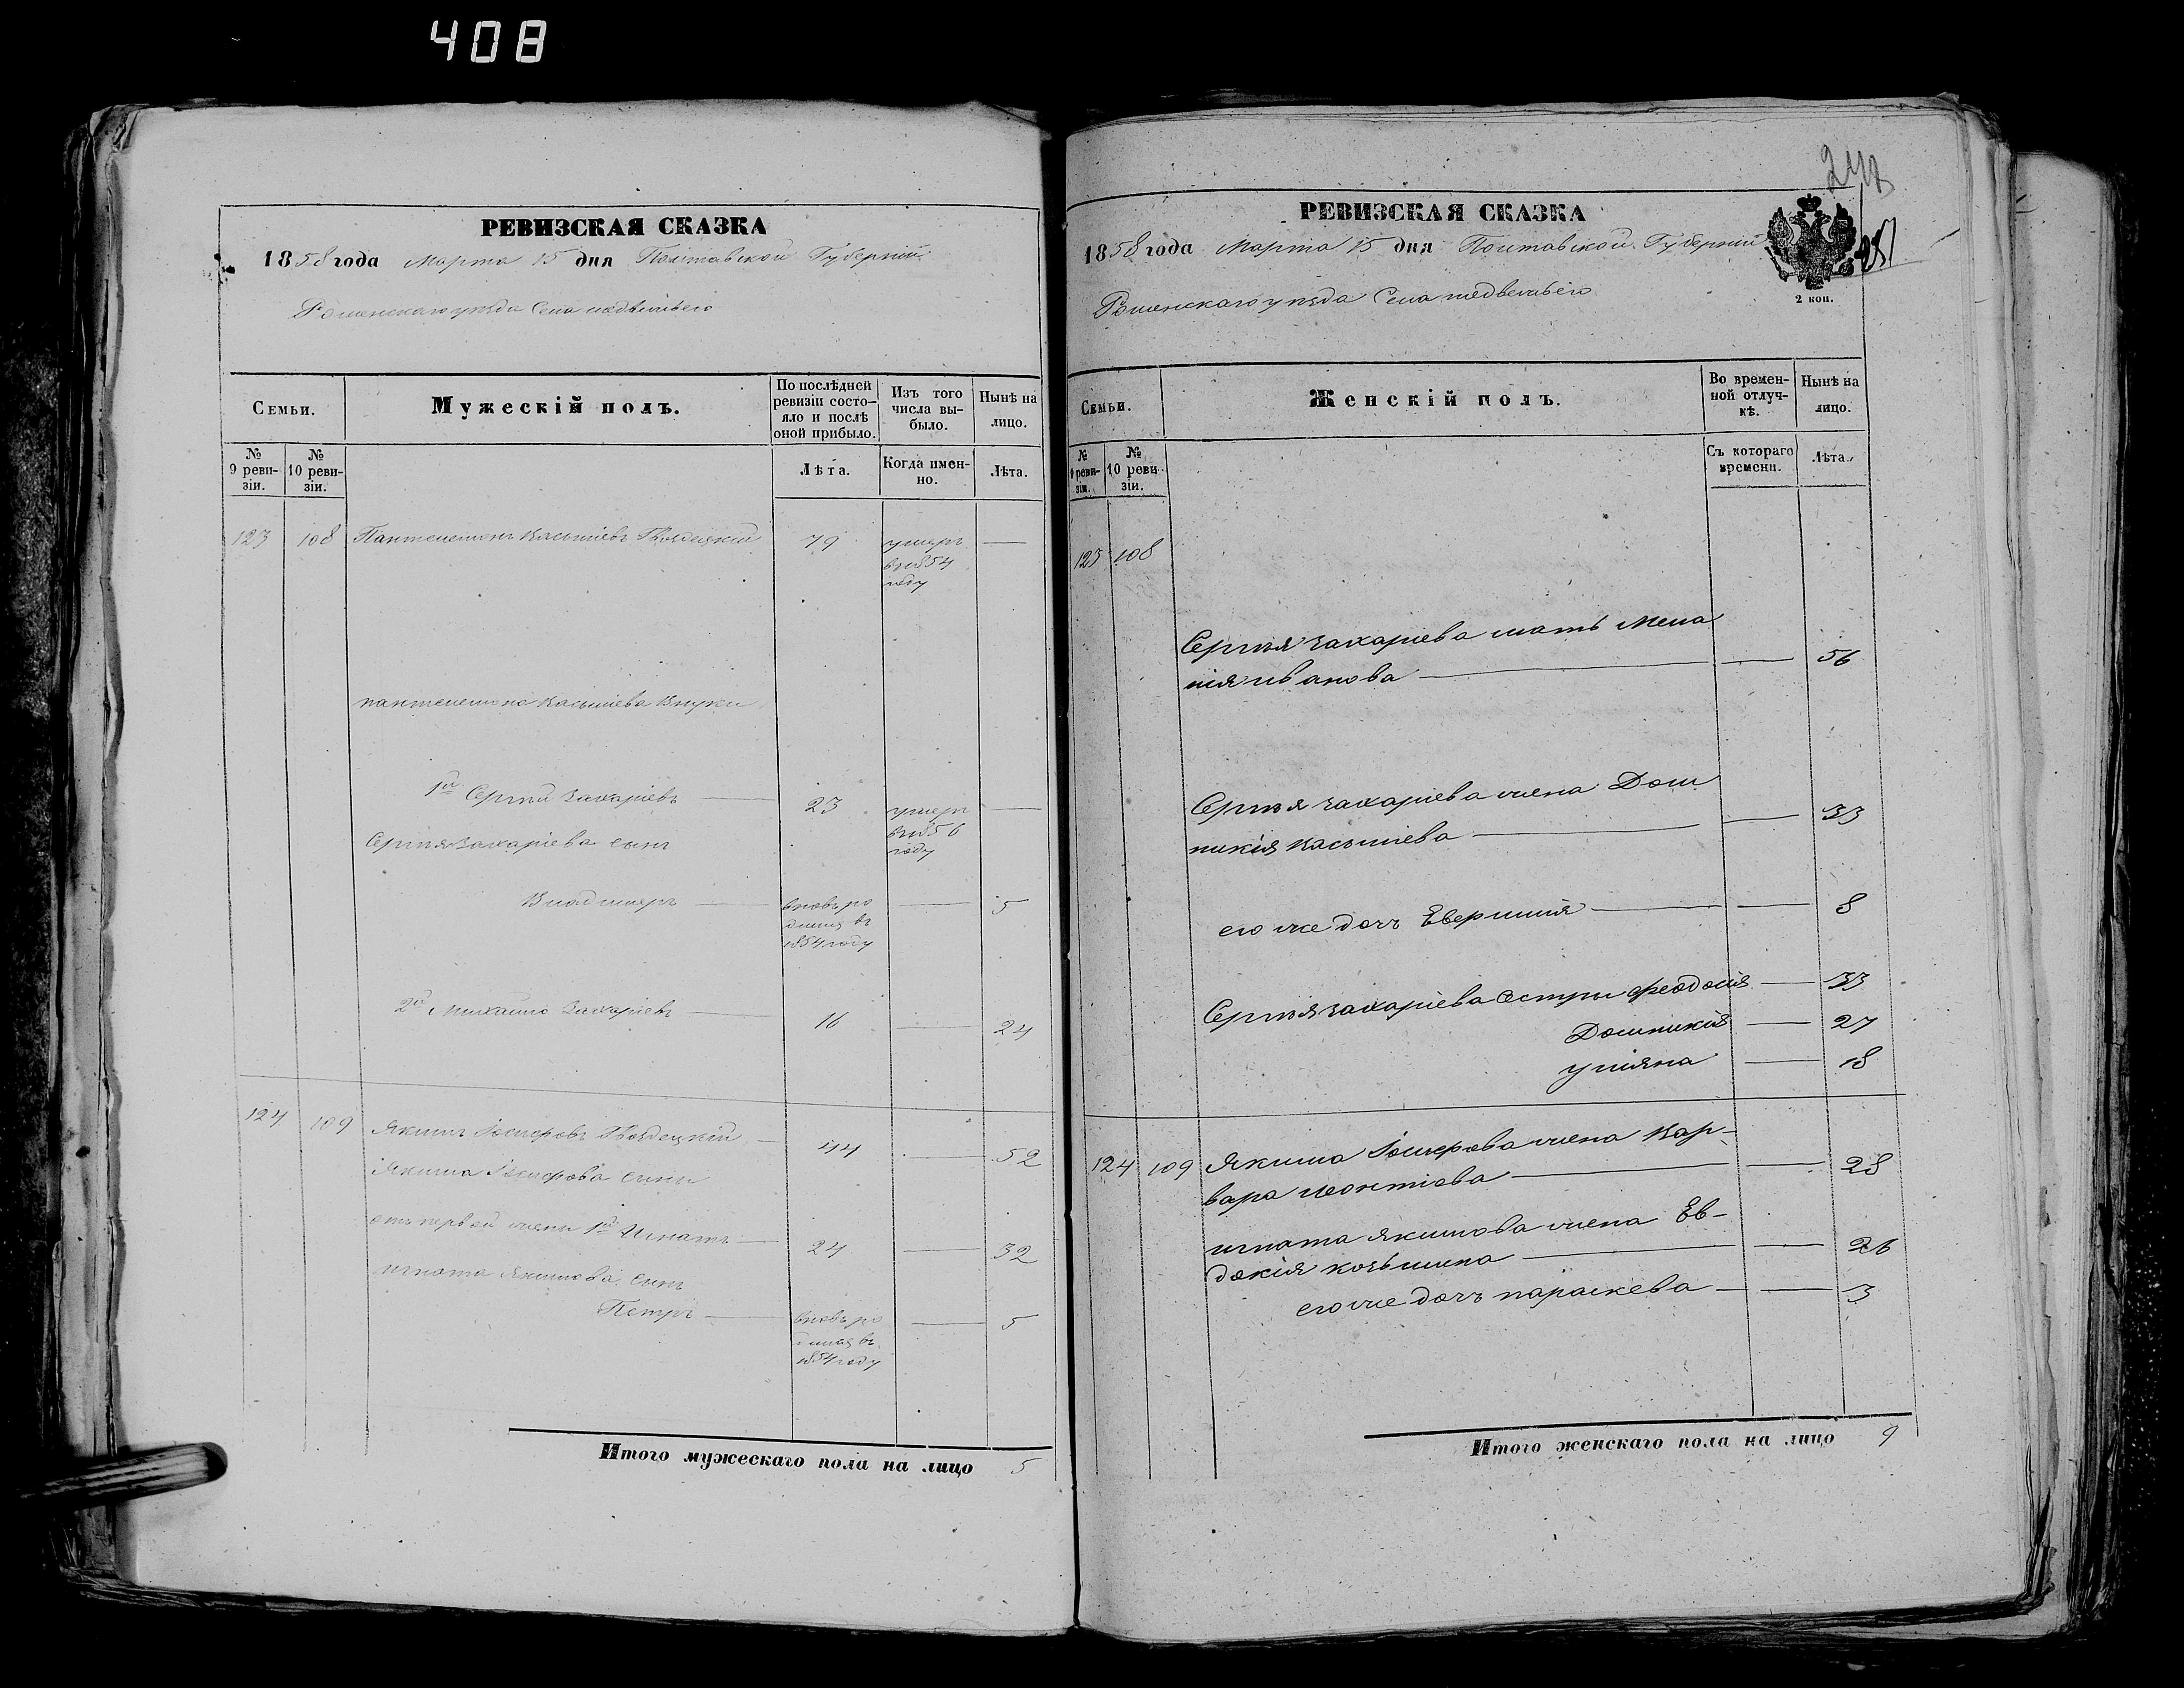 408
РЕВИЗСКАЯ СКАЗКА
1858 года Марта 15 дня Полтавской Губерніи
Роменскаго уѣзда Села медвежьего
Семьи.
Мужескій полъ.
По послѣдней ревизіи состо-
яло и послѣ оной прибыло.
Изъ того числа вы-
было.
Нынѣ на лицо.
№ 9 реви-
зіи.
№ 10 реви-
зіи.
Лѣта.
Когда имен-
но.
Лѣта.
123 108 Пантелемонъ Касьяневъ Гвоздецкій 79 умеръ —
въ 1854
году
пантелемона Касьянева Внуки
1й Сергѣй Захаріевъ — 23 умеръ —
въ 1856
году
Сергѣя Захаріева сынъ
Владимеръ — вновь ро — 5
дился въ
1854 году
2й Михайло Захаріевъ — 16 — 24
124 109 Якимъ Іосифовъ Гвоздецкій — 44 — 52
Якима Іосифова сыны
отъ первой жены 1й Игнатъ — 24 — 32
игната Якимова сынъ
Петръ — вновь ро — 5
дился въ
1854 году
Итого мужескаго пола на лицо 5
РЕВИЗСКАЯ СКАЗКА
1858 года Марта 15 дня Полтавской Губерніи
Роменскаго уѣзда Села медвежьего
2 коп.
Семьи.
Женскій полъ.
Во времен-
ной отлуч-
кѣ.
Нынѣ на лицо.
№ 9 реви-
зіи.
№ 10 реви-
зіи.
Съ котораго времени.
Лѣта.
123 108
Сергѣя захаріева мать Мела
нія иванова — — 56
Сергѣя захаріева жена Дом
никія касьянева — — 33
его же дочь Евгенія — — 8
Сергѣя захаріева сестры феодосія — 33
Домникія — 27
уліяна — 18
124 109 Якима Іосифова жена Вар-
вара леонтіева — — 28
игната якимова жена Ев-
докія козьмина — — 26
его же дочь параскева — — 3
Итого женскаго пола на лицо 9